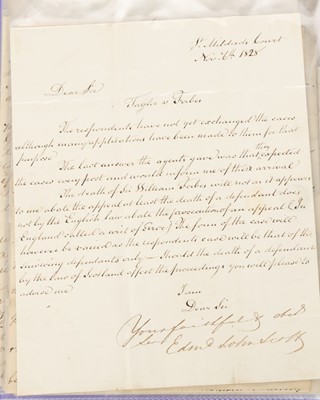 St Mildreds Court
Nov. 6th 1828
Dear Sir
Taylor v Forbes
The respondents have not yet exchanged the cases
although many applications have been made to them for that
purpose
The last answer the agents gave was that they expected
the cases every post and would inform me of their arrival
The death of Sir William Forbes will not as it appears
to me abate the appeal at least the death of a defendant does
not by the English law abate the prosecution of an appeal (In
England called a writ of Error) The form of the case will
however be varied as the respondents case will be that of the
surviving defendants only — Should the death of a defendant
by the law of Scotland affect the proceedings you will please to
advise me
I am
Dear Sir
Yours faithful & obedt
Edmd John Scott